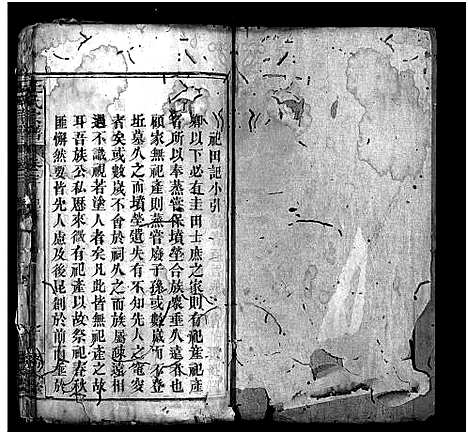 祀田記小引
卿以下必有圭田士庶之家則有祀產祀產
者所以奉蒸嘗保墳塋合族眾垂久遠者也
顧家無祀產則蒸嘗廢子孫或數歲而不登
坵墓久之而墳塋遺失有不知先人之窀穸
者矣或數歲不會於祠久之而族屬疎遠相
遇不識視若塗人者矣凡此皆無祀產之故
耳吾族公私歷來微有祀產以故祭祀春秋
匪懈然要皆先人慮及後昆創於前而垂於